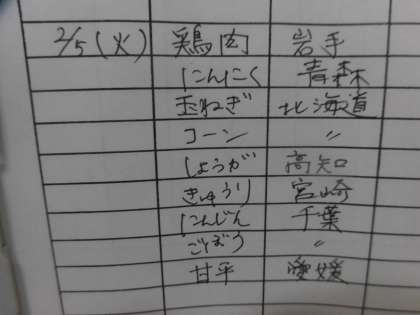 2/5(火) 鶏肉 岩手
にんにく 青森
玉ねぎ 北海道
コーン 〃
しょうが 高知
きゅうり 宮崎
にんじん 千葉
ごぼう 〃
甘平 愛媛